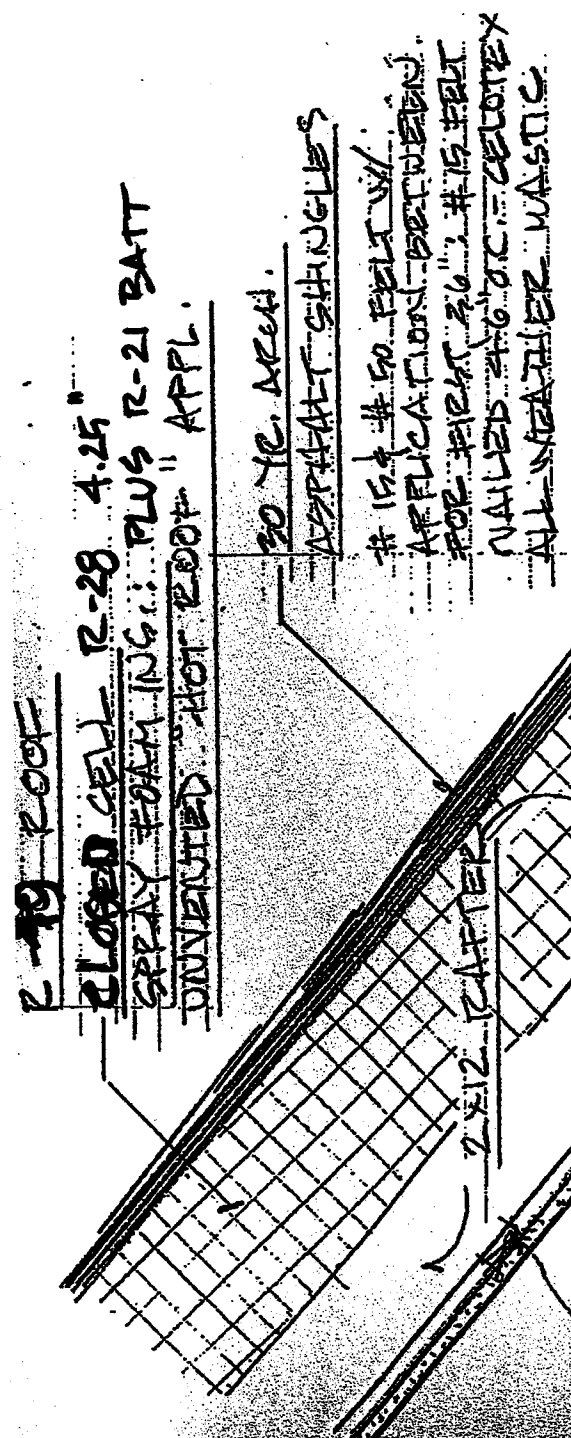 R-49 ROOF
CLOSED CELL R-28 4.25"
SPRAY FOAM ING. PLUS R-21 BATT
UNVENTED "HOT ROOF" APPL.
30 YR. ARCH.
ASPHALT SHINGLES
# 15 & # 50 FELT W/
APPLICATION BETWEEN.
FOR FIRST 36". #15 FELT
NAILED @ 6" O.C. - CELOTEX
ALL-WEATHER MASTIC
2x12 RAFTER